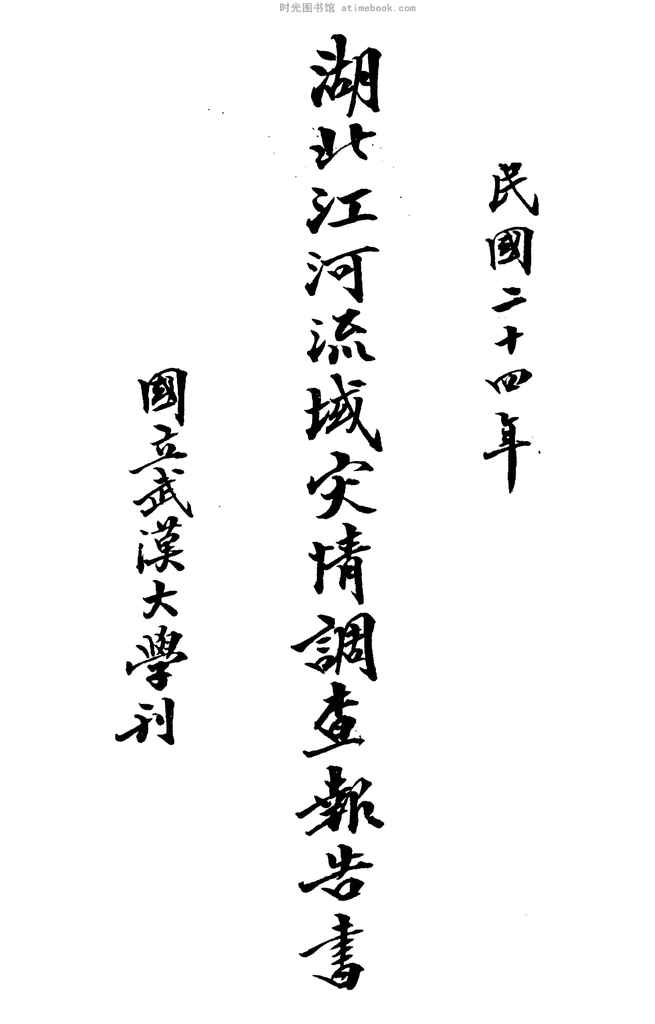 时光图书馆 atimebook.com
民國二十四年
湖北江河流域灾情調查報告書
國立武漢大學刊